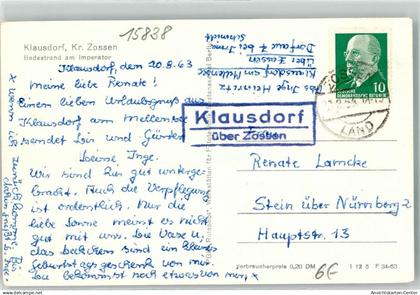 15838
Klausdorf, Kr. Zossen
Badestrand am Imperator
Klausdorf, den 20.8.63
Meine liebe Renate!
Einen lieben Urlaubsgruß aus
Klausdorf am Mellensee
sendet Dir und Günter
Deine Inge.
Wir sind gut unterge-
bracht. Auch die Verpflegung
ist ordentlich. Nur die
liebe Sonne meint es nicht
gut mit uns. Die Vase u.
das Deckchen sind ein kleines
Geburtstagsgeschenk von mir.
Du bekommst noch etwas von mir
x wenn ich
zurück
Abs. Inge
Klausdorf am Mellensee
über Zossen
Dorfaue 7 bei Irma
Schmidt
Klausdorf
über Zossen
10
LAND
Renate Lamcke
Stein über Nürnberg 2
Hauptstr. 13
Verbraucherpreis 0,20 DM
I 12 6 F 34-63
6€
Ansichtskarten-Center